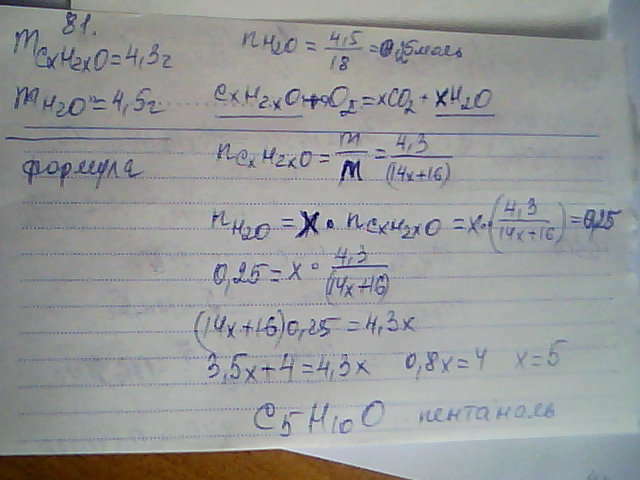 81.
mCxH2xO=4,3г
nH2O = 4,5/18 = 0,25моль
mH2O = 4,5г
CxH2xO + O2 = xCO2 + xH2O
формула
nCxH2xO = m/M = 4,3/(14x+16)
nH2O = x · nCxH2xO = x·(4,3/14x+16) = 0,25
0,25 = x · 4,3/(14x+16)
(14x+16)0,25 = 4,3x
3,5x+4 = 4,3x 0,8x=4 x=5
C5H10O пентаналь